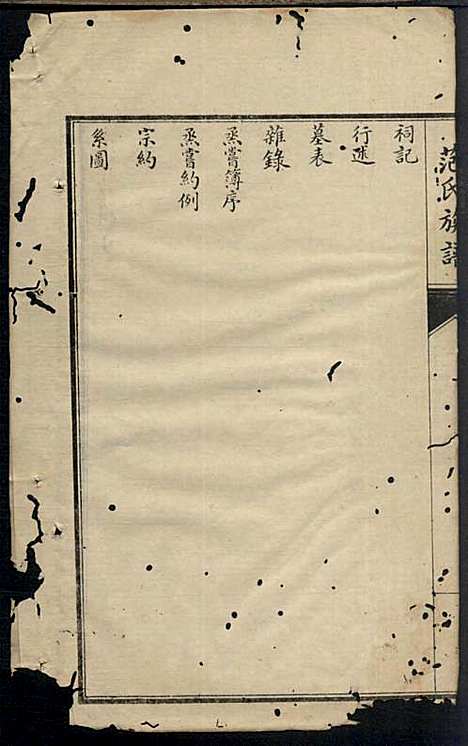 范氏族譜
祠記
行述
墓表
雜錄
烝嘗簿序
烝嘗約例
宗約
系圖